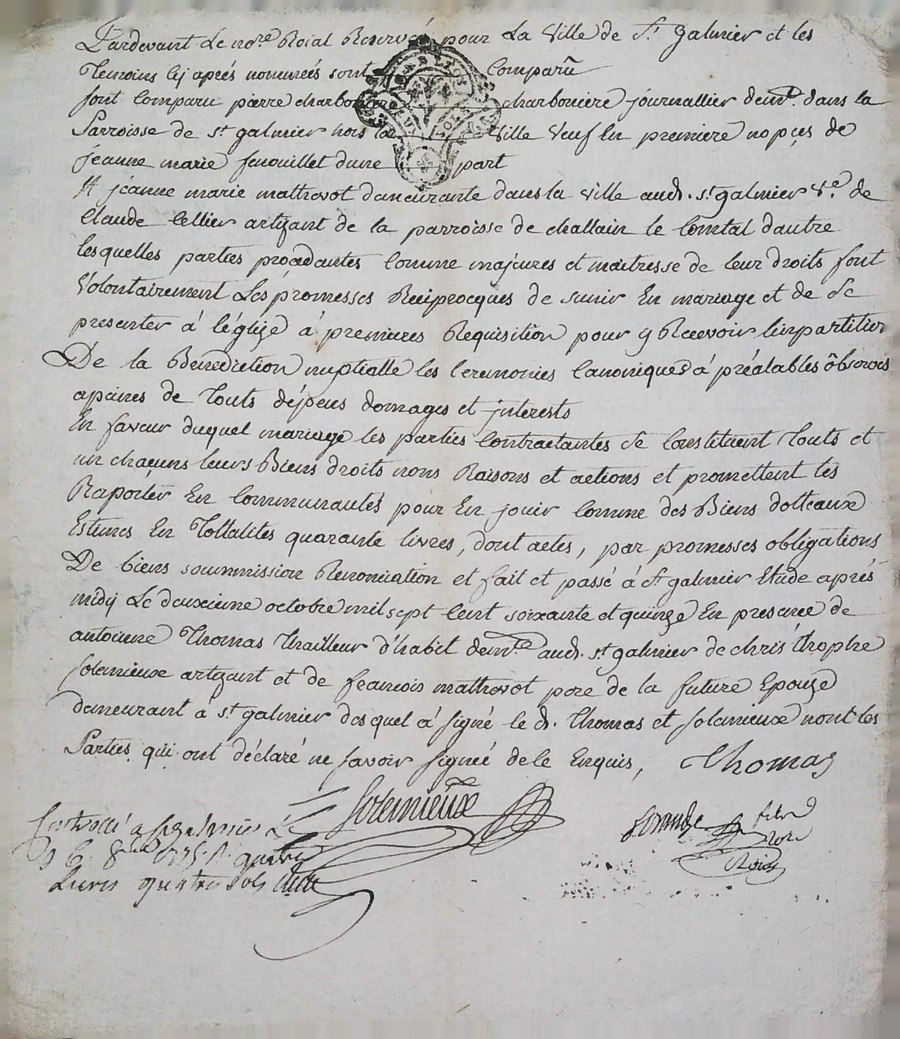 Pardevant Le nore. Roial Reservé pour La Ville de St. galmier et les
Temoins Cy aprés nommeés sont Comparû
sont Comparu pierre charboniere charboniere journallier demt. dans la
Parroisse de st galmier hors la Ville Veuf En premiere nopçes de
jeanne marie fenouillet dune part
Et jeanne marie mathevot demeurante dans la Ville aud. st. galmier Ve. de
Claude Cellier artizant de la parroisse de challain le Comtal dautre
lesquelles parties procedantes Comme majeures et maitresse de leur droits font
Volontairement Les promesses Reciprocques de sunir En mariage et de Se
presenter á léglize á premieres Requisition pour y Recevoir linpartition
De la Benediction nuptialle les Ceremonies Canoniques á préalables ôbservés
apaines de touts dépens domages et jnterests
En faveur duquel mariage les parties Contractantes Se Constituent touts et
un chaçuns leurs Biens droits noms Raisons et actions et promettent les
Raporter En Communautés pour En jouir Comme des Biens dotteaux
Estimés En Tottalites quarante livres, dont actes, par promesses obligations
De biens soummission Renonciation et fait et passé á St. galmier Etude aprés
midy Le deuxieme octobre mil sept Cent soixante et quinze En presance de
antoinne Thomas thailleur d'habit demt. aud. st. galmier de christhophe
solemieux artizant et de francois mathevot pere de la future Epouze
demeurant á st. galmier desquel á signé le d. Thomas et solemieux nont les
Parties qui ont déclaré ne savoir signée de le Enquis, Thomas
Solemieux
Controllé a st galmier Le
6 8bre 1775 R quatre
Livres quatre sols
fils
Nore
Roial